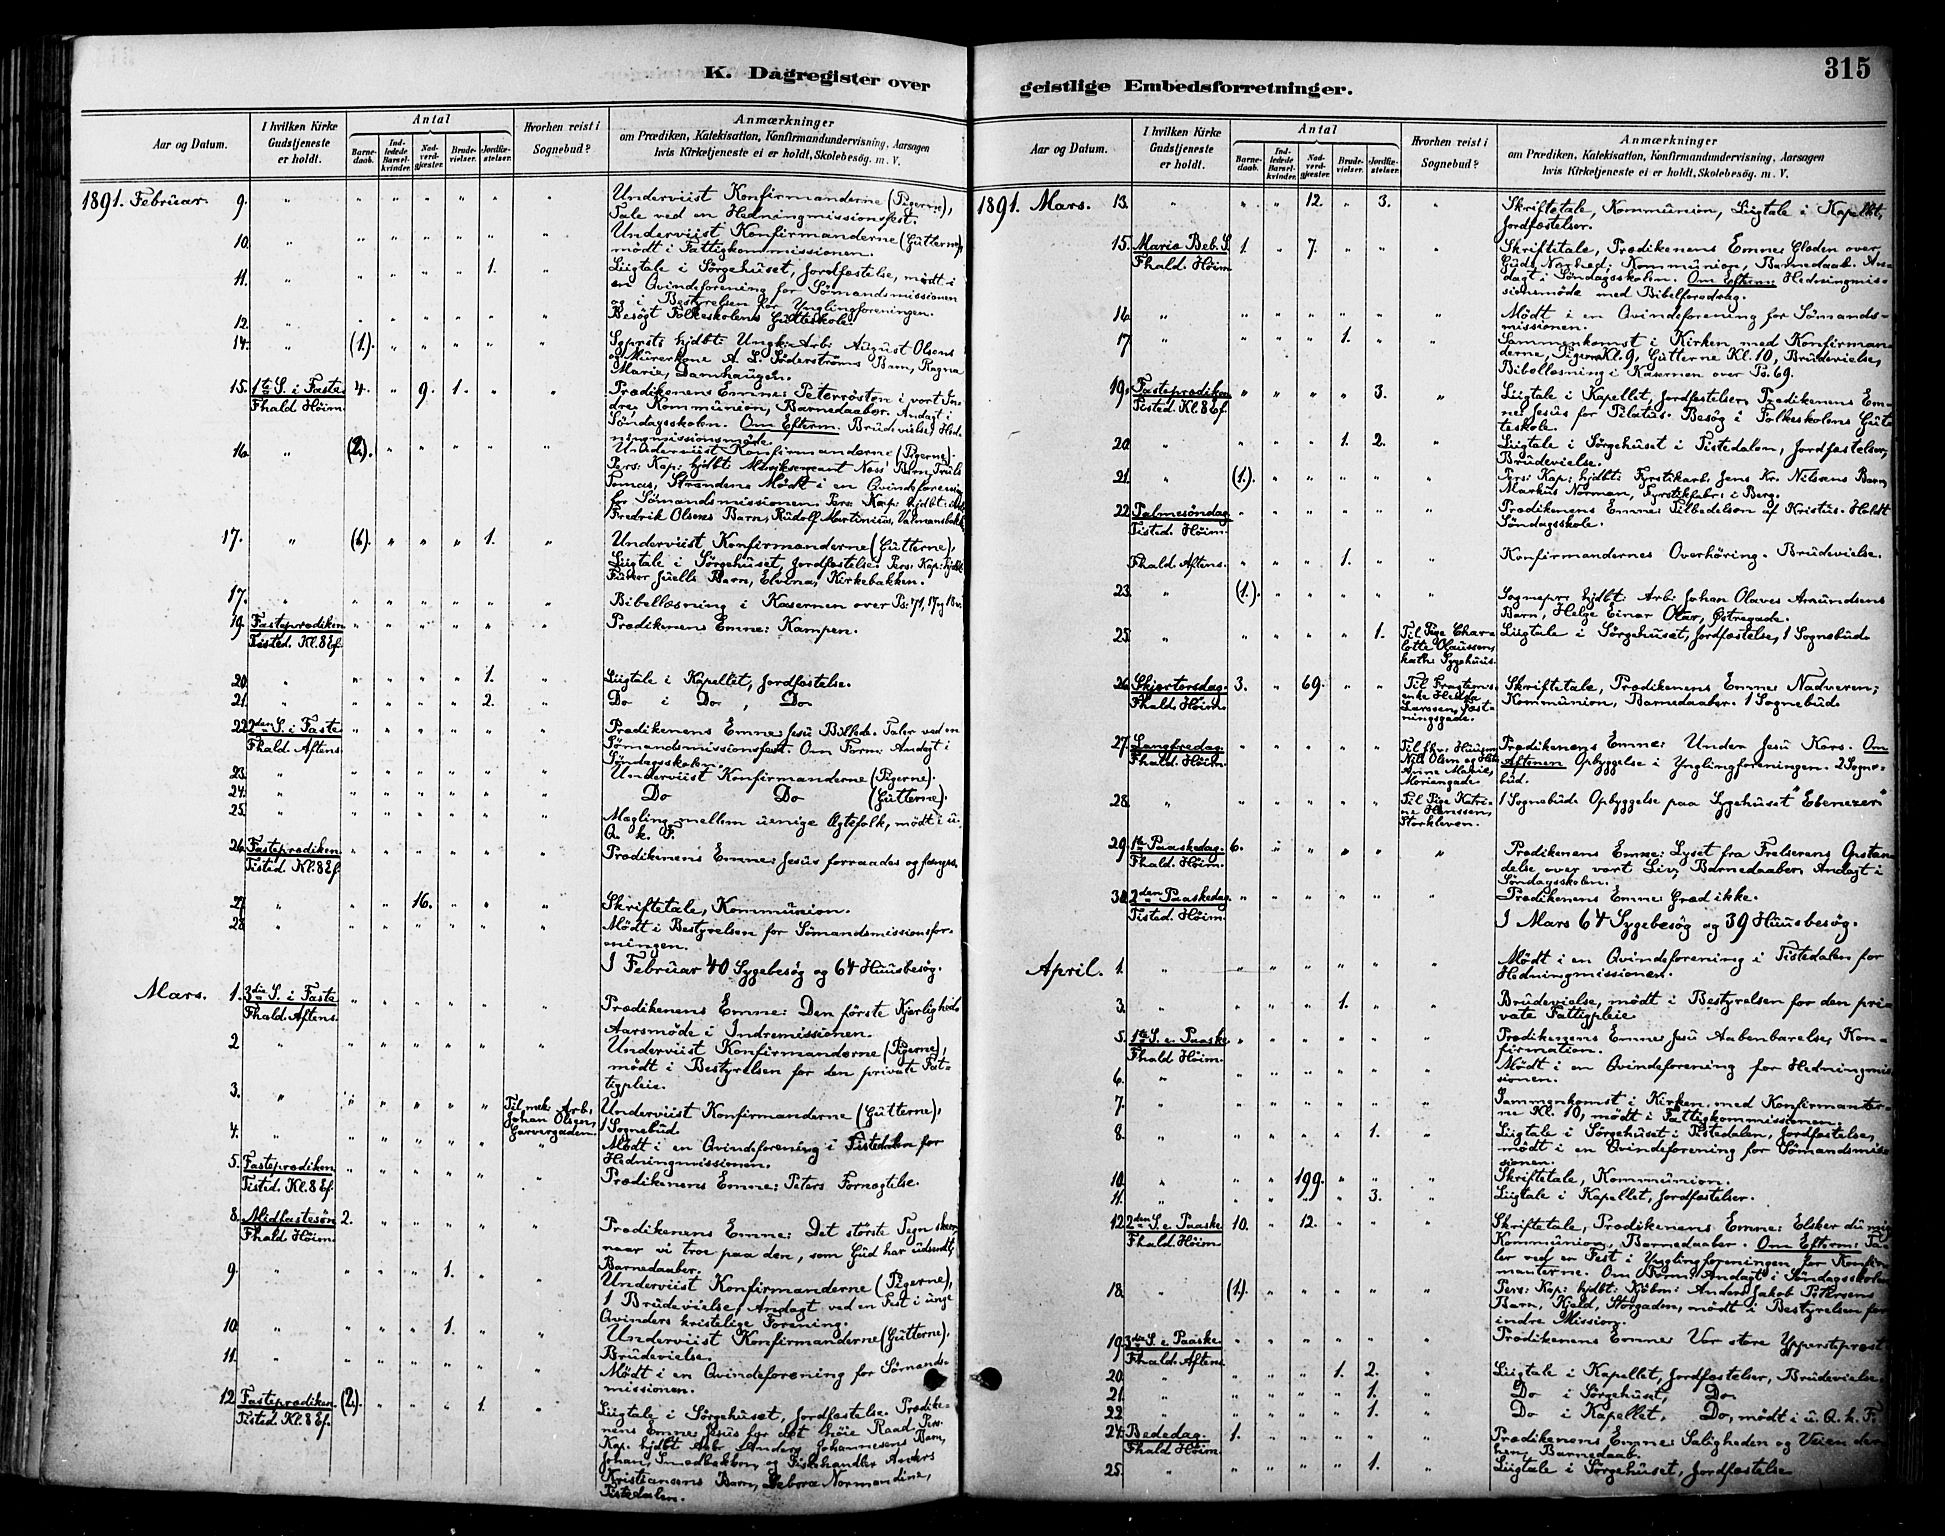 K. Dagregister over
geistlige Embedsforretninger.
315
Aar og Datum.
I hvilken Kirke Gudstjeneste er holdt.
Antal
Barne-daab.
Ind-ledede Barsel-kvinder.
Nad-verd-gjester.
Brude-vielser.
Jordfæ-stelser.
Hvorhen reist i Sognebud?
Anmærkninger
om Prædiken, Katekisation, Konfirmandundervisning, Aarsagen
hvis Kirketjeneste ei er holdt, Skolebesøg. m. V.
1891. Februar. 9. Underviist Konfirmanderne (Pigerne),
Tale ved en Hedningmissionsfest.
10. Underviist Konfirmanderne (Gutterne),
mødt i Fattigkommissionen.
11. 1. Liigtale i Sørgehuset, Jordfæstelse, mødt i
en Qvindeforening for Sømandsmissionen
og i Bestyrelsen for Ynglingforeningen.
12. Besøgt Folkeskolens Gutteskole.
14. (1). Sgprsts hjdbt: Ungk: Arb: August Olsens
og Murerkone A. L. Söderströms Barn, Ragna
Marie, Damhaugen.
15. 1ste S. i Faste 4. 9. 1. Prædikenens Emne: Peterrösten i vort In-
Fhald Höim. dre, Kommunion, Barnedaaber. Andagt i
Søndagsskolen. Om Efterm. Brudevielse, Hed-
ningmissionsmøde.
16. (2). Underviist Konfirmanderne (Pigerne).
Pers: Kap: hjdbt:
Tomas, Strandens. Mødt i en Qvindeforening
for Sømandsmissionen. Pers: Kap: hjdbt:
Fredrik Olsens Barn, Rudolf Martinius,
17. (1). 1. Underviist Konfirmanderne (Gutterne),
Liigtale i Sørgehuset, Jordfæstelse. Pers: Kap: hjdbt
Juells Barn, Elvina, Kirkebakken.
17. Bibellæsning i Kasernen over Ps: 71, 17 og 18 v.
19. Fasteprædiken Prædikenens Emne: Kampen.
Tisted. Kl. 8 Ef.
20. 1. Liigtale i Kapellet, Jordfæstelse.
21. 2. Do i Do, Do
22. 2den S. i Faste Prædikenens Emne: Jesu Billede. Taler ved en
Fhald. Aftens. Sømandsmissionsfest. Om Form: Andagt i
Søndagsskolen.
23. Underviist Konfirmanderne (Pigerne).
24. Do Do (Gutterne).
25. Mægling mellem uenige Ægtefolk, mødt i u.
Q. k. F.
26. Fasteprædiken Prædikenens Emne: Jesus forraades og fanges.
Tisted Kl. 8 Ef.
27. 16. Skriftetale, Kommunion.
28. Mødt i Bestyrelsen for Sømandsmissionsfor-
eningen.
I Februar 40 Sygebesøg og 64 Huusbesøg.
Mars. 1. 3die S. i Faste Prædikenens Emne: Den første Kjærlighed.
Fhald. Aftens. Aarsmøde i Indremissionen.
2 Underviist Konfirmanderne (Pigerne),
mødt i Bestyrelsen for den private Fat-
tigpleie.
3. Til mek: Arb: Johan Olsen, Garvergaden. Underviist Konfirmanderne (Gutterne),
1 Sognebud.
4. Mødt i en Qvindeforening i Tistedalen for
Hedningmissionen.
5. Fasteprædiken Prædikenens Emne: Peters Fornægtelse.
Tisted. Kl. 8 Ef.
8. Midfastesøn 2. Prædikenens Emne: Det største Tegn sker
Fhald Höim. naar vi troe paa den, som Gud har udsendt,
Barnedaaber.
9. 1. Underviist Konfirmanderne (Pigerne),
1 Brudevielse, Andagt ved en Fest i unge
Qvinders kristelige Forening.
10. 1. Underviist Konfirmanderne (Gutterne),
Brudevielse.
11. Mødt i en Qvindeforening for Sømands-
missionen.
12 Fasteprædiken. (2). 1. Liigtale i Sørgehuset, Jordfæstelse. Prædike-
Tisted Kl. 8 Ef. nens Emne: Jesus for det høie Raad. Pers:
Kap: hjdbt Arb: Anders Johannesens Barn,
Johan, Smedbakken, og Fiskehandler Anders
Kristiansens Barn, Debora Normandine,
Tistedalen.
Aar og Datum.
I hvilken Kirke Gudstjeneste er holdt.
Antal
Barne-daab.
Ind-ledede Barsel-kvinder.
Nad-verd-gjester.
Brude-vielser.
Jordfæ-stelser.
Hvorhen reist i Sognebud?
Anmærkninger
om Prædiken, Katekisation, Konfirmandundervisning, Aarsagen
hvis Kirketjeneste ei er holdt, Skolebesøg. m. V.
1891. Mars. 13. 12. 3. Skriftetale, Kommunion, Liigtale i Kapellet,
Jordfæstelser.
15. Mariæ Beb. S. 1. 7. Skriftetale, Prædikenens Emne: Glæden over
Fhald. Höim. Guds Nærhed; Kommunion, Barnedaab. An-
dagt i Søndagsskolen. Om Efterm: Hedningmis-
sionsmøde med Bibelforedrag.
16. Mødt i en Qvindeforening for Sømands-
missionen.
17 1. Sammenkomst i Kirken med Konfirman-
derne, Pigerne Kl. 9, Gutterne Kl. 10, Brudevielse,
Bibellæsning i Kasernen over Ps. 69.
19. Fasteprædiken 3. Liigtale i Kapellet, Jordfæstelser, Prædikenens Em-
Tisted. Kl. 8 Ef. ne: Jesus for Pilatus. Besøg i Folkeskolens Gut-
teskole.
20. 1. 2. Liigtale i Sørgehuset i Tistedalen, Jordfæstelser,
Brudevielse.
21. (1). Pers: Kap: hjdbt: Fyrstikarb: Jens Kr. Nilsens Barn,
Markus Norman, Fyrstikfabr: i Berg.
22 Palmesøndag Prædikenens Emne: Tilbedelsen af Kristus. Holdt
Tisted. Höim. Søndagsskole.
Fhald Aftens. 1. Konfirmandernes Overhøring. Brudevielse.
23. (1). Sognepr: hjdbt: Arb: Johan Olaves Amundsens
Barn, Helge Einar Olav, Østregade.
25. 1. Til Pige Char-lotte Olaussen, kath: Sygehuus. Liigtale i Sørgehuset, Jordfæstelse, 1 Sognebud.
26. Skjærtorsdag. 3. 69. Til Hedda Larssen, Fæst-ningsgade. Skriftetale, Prædikenens Emne: Nadveren;
Fhald. Höim. Kommunion, Barnedaaber. 1 Sognebud.
27. Langfredag Nils Olsen og Anne Marie, Prædikenens Emne: Under Jesu Kors. Om
Fhald. Höim. Aftenen Opbyggelse i Ynglingforeningen. 2 Sogne-
bud.
28. Til Pige Katri-ne Hanssen, Storkleven. 1 Sognebud. Opbyggelse paa Sygehuset "Ebenezer".
29. 1ste Paaskedag. 6. Prædikenens Emne: Lyset fra Frelserens Opstan-
Fhald. Höim. delse over vort Liv, Barnedaaber, Andagt i
Søndagsskolen.
30. 2den Paaskedag. Prædikenens Emne: Græd ikke.
Tisted. Höim. I Mars 64 Sygebesøg og 39 Huusbesøg.
April. 1. Mødt i en Qvindeforening i Tistedalen for
Hedningmissionen.
3. 1. Brudevielse, mødt i Bestyrelsen for den pri-
vate Fattigpleie
5. 1ste S. e. Paaske Prædikenens Emne: Jesu Aabenbarelse, Kon-
Fhald Höim. firmation.
6. Mødt i en Qvindeforening for Hedningmis-
sionen.
7. Sammenkomst i Kirken med Konfirmanter-
ne Kl. 10, mødt i Fattigkommissionen.
8. 1. Liigtale i Sørgehuset i Tistedalen, Jordfæstelse,
mødt i en Qvindeforening for Sømandsmis-
sionen.
10. 199. Skriftetale, Kommunion.
11. 3. Liigtale i Kapellet, Jordfæstelser.
12. 2den S. e. Paaske 10. 12. Skriftetale, Prædikenens Emne: Elsker du mig,
Fhald. Höim. Kommunion, Barnedaaber. Om Efterm: Ta-
ler ved en Fest i Ynglingforeningen for Konfir-
manterne. Om Form: Andagt i Søndagsskolen
18. (1). Pers: Kap: hjdbt: Kjøbm: Anders Jakob Petersens
Barn, Kjeld, Storgaden, mødt i Bestyrelsen for
indre Mission.
19. 3die S. e. Paaske. Prædikenens Emne: Vor store Ypperstepræst.
Fhald. Aftens.
20. 1. 2. Liigtale i Kapellet, Jordfæstelser, Brudevielse.
21. 1. Do i Sørgehuset, Do.
22 1. Do i Kapellet, Do, mødt i u. Q. k. F.
24. Bededag. 1. Prædikenens Emne: Saligheden og Veien der-
Fhald Höim. hen, Barnedaab.
25. 1. Liigtale i Sørgehuset, Jordfæstelse